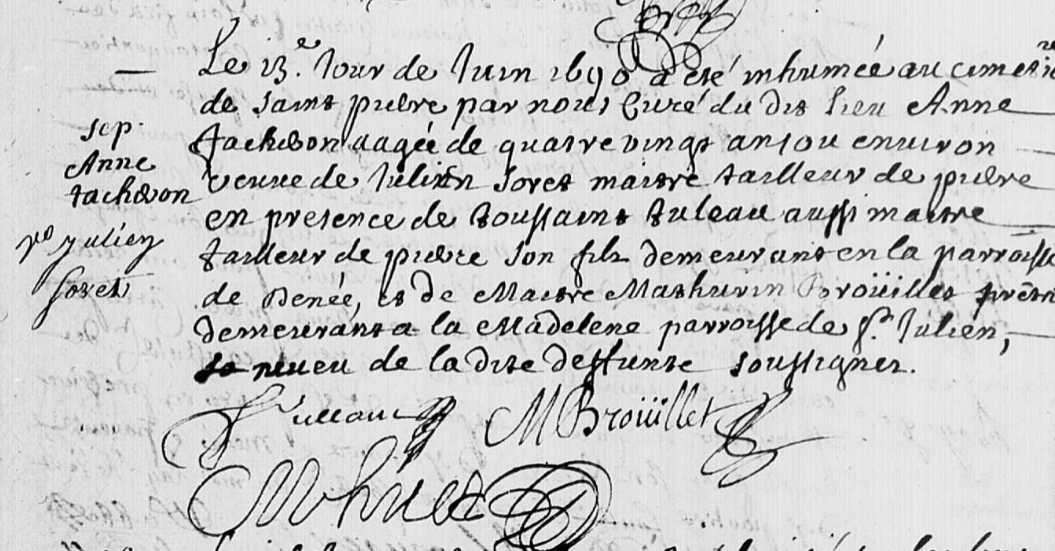 Le 13.e Jour de Juin 1690 a été inhumée au cimetie
de saint pierre par nous Curé du dit lieu Anne
Tacheron aagée de quatre vingt ans ou environ
veuve de Julien Soret maistre tailleur de pierre
en presence de toussaint tuleau aussi maistre
tailleur de pierre son fils demeurant en la parroisse
de Denée, et de Maistre Mathurin Broüillet prêtre
demeurant a la Madelene parroisse de St. Julien,
neveu de la dite deffunte soussignez.
sep.
Anne
tacheron
Julien
Soret
Tulleau
MBroüillet